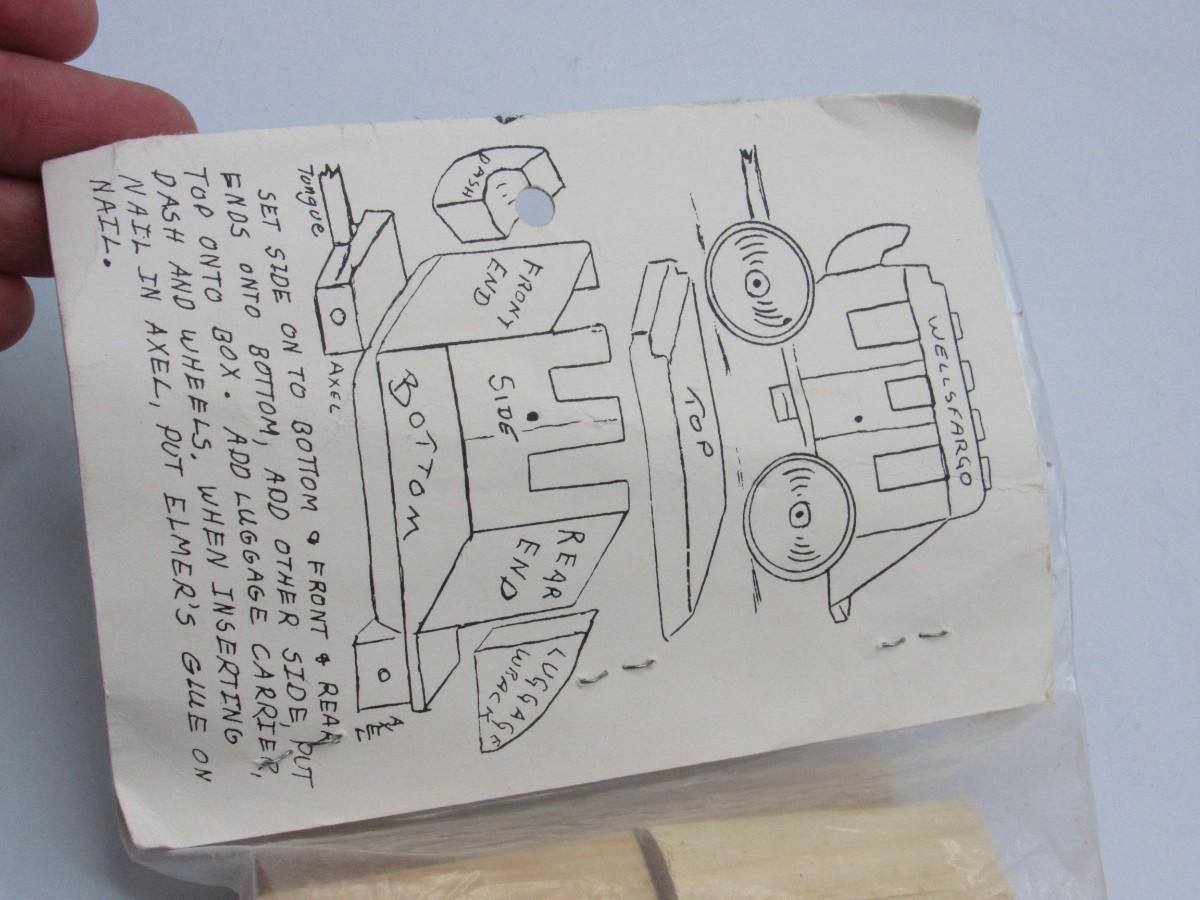 WELLSFARGO
TOP
DASH
FRONT
END
SIDE
REAR
END
LUGGAGE
WRACK
Tongue
AXEL
BOTTOM
AXEL
SET SIDE ON TO BOTTOM & FRONT & REAR
ENDS ONTO BOTTOM, ADD OTHER SIDE, PUT
TOP ONTO BOX. ADD LUGGAGE CARRIER,
DASH AND WHEELS. WHEN INSERTING
NAIL IN AXEL, PUT ELMER'S GLUE ON
NAIL.